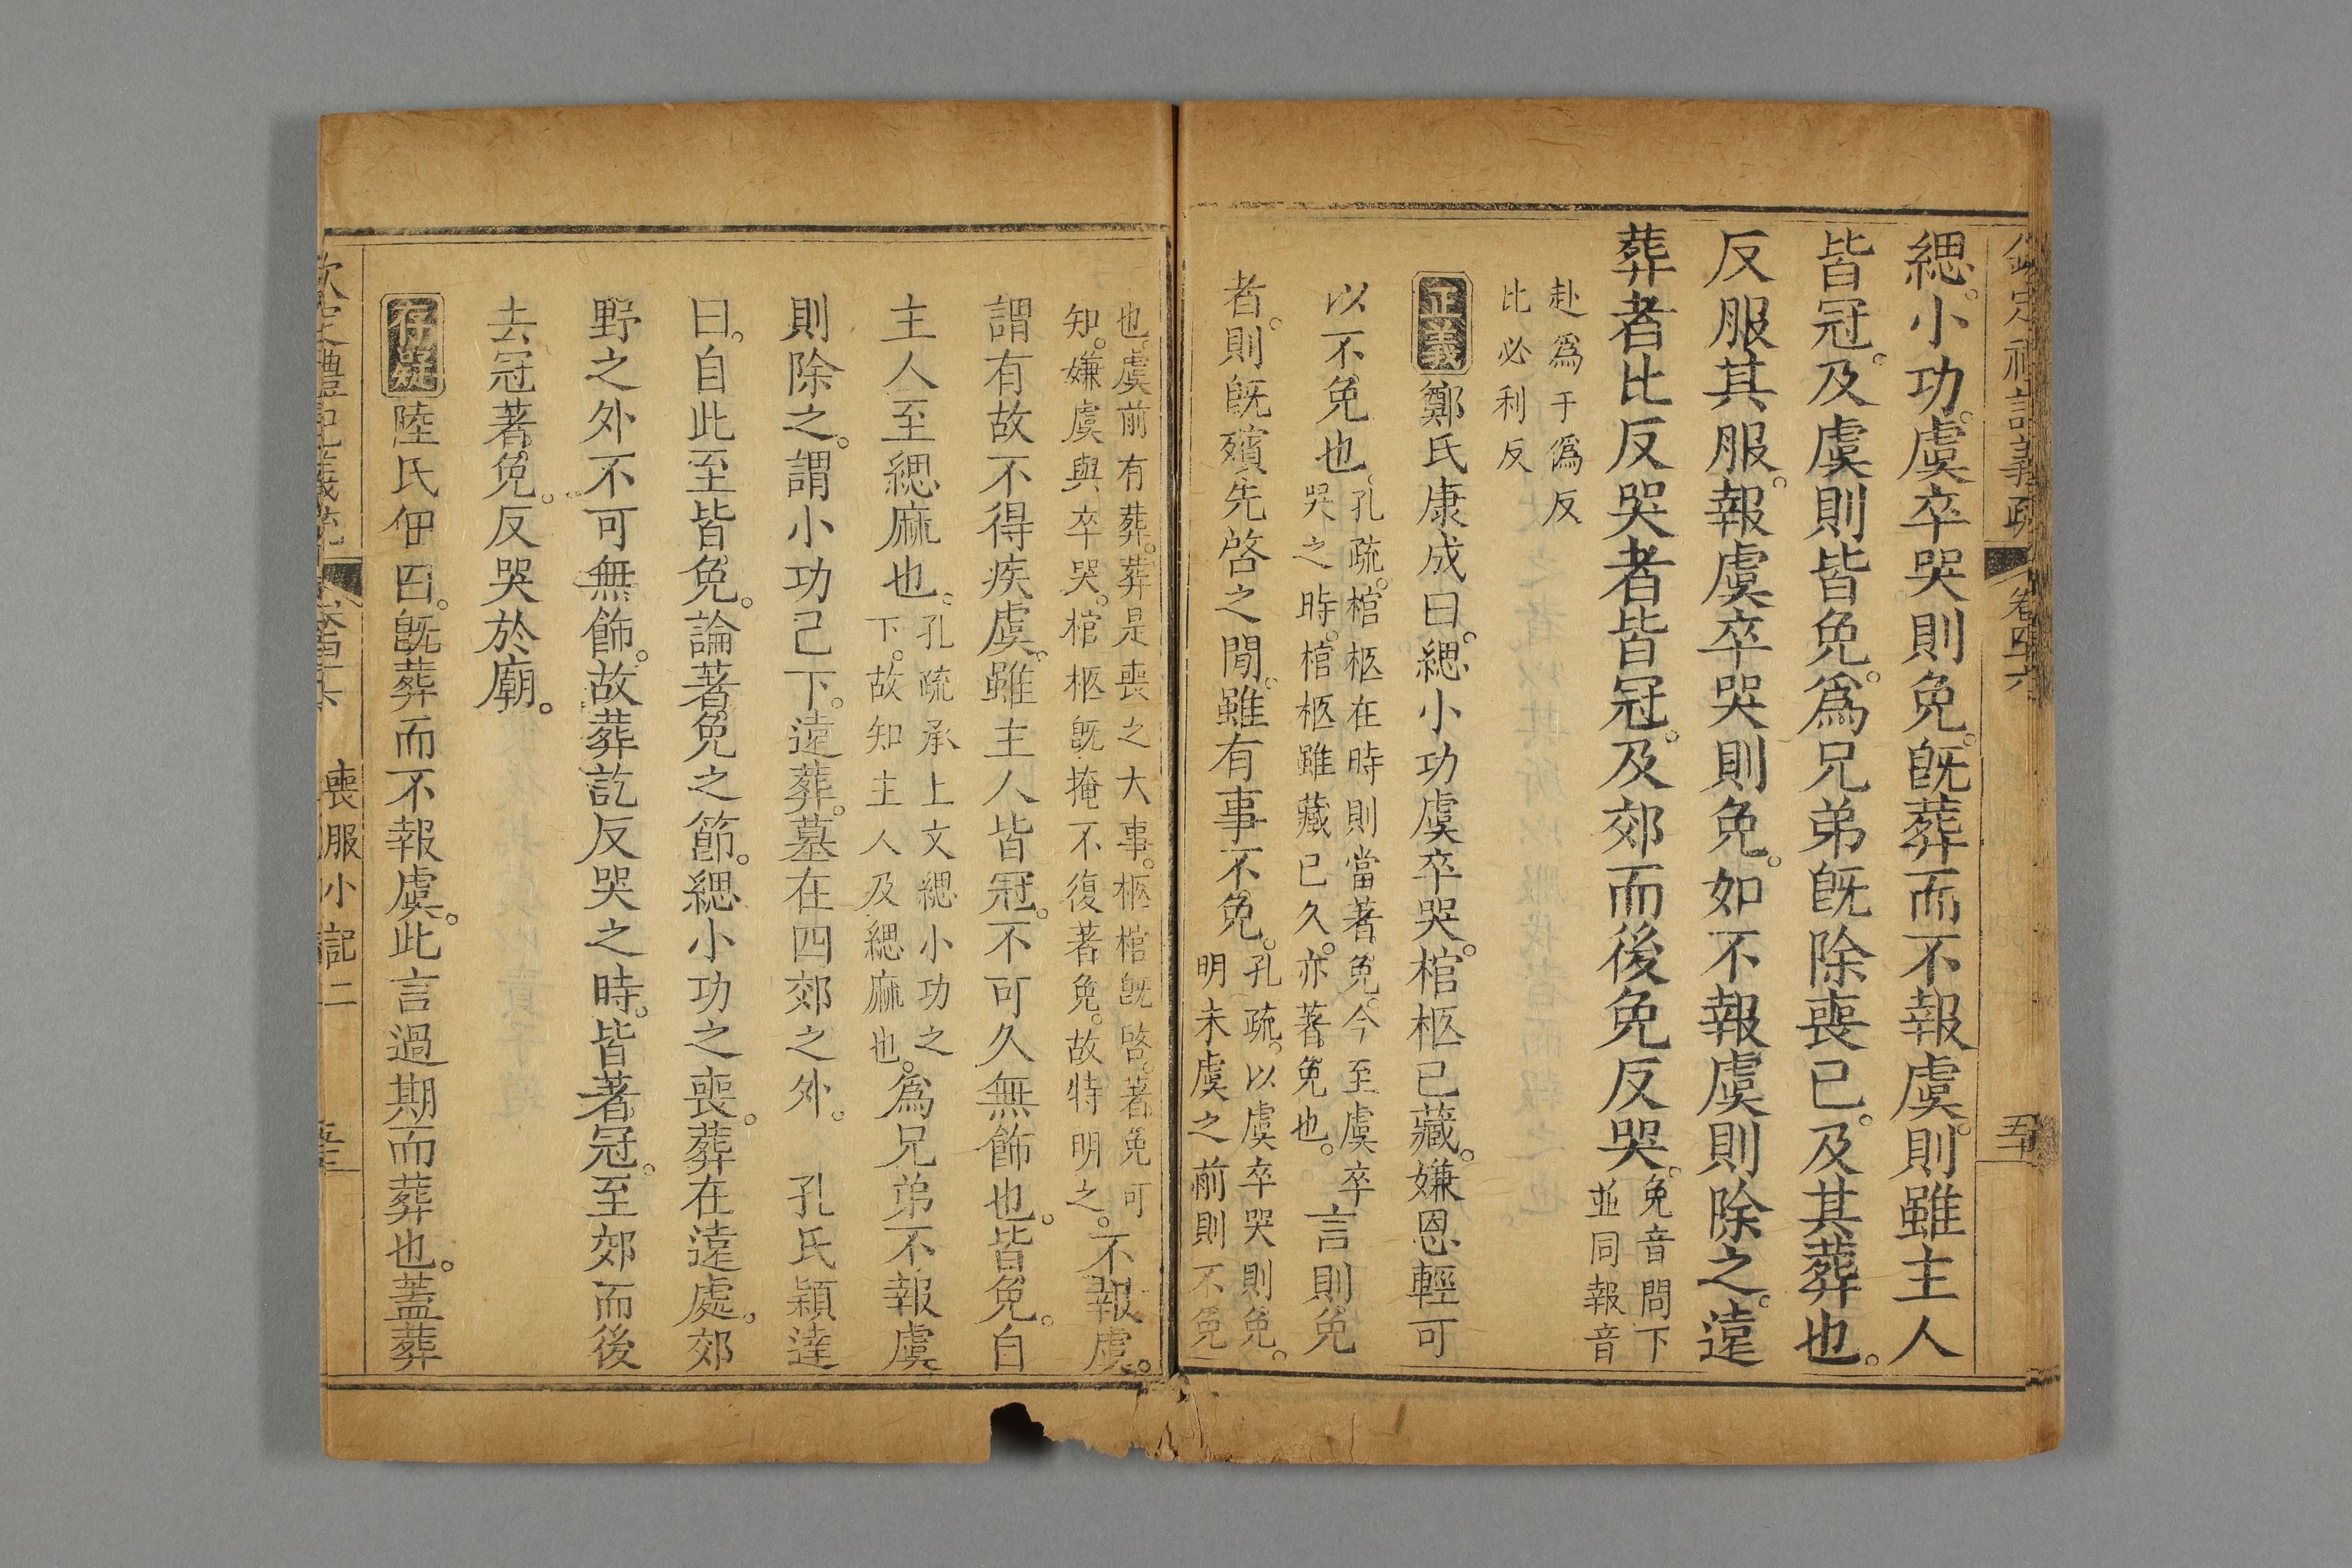 欽定禮記義疏
卷四十六
五十
緦小功。虞卒哭則免。旣葬而不報虞。則雖主人
皆冠。及虞則皆免。爲兄弟旣除喪已。及其葬也。
反服其服。報虞卒哭則免。如不報虞則除之。遠
葬者比反哭者皆冠。及郊而後免反哭。
免音問下
並同報音
赴爲于僞反
比必利反
正義鄭氏康成曰。緦小功虞卒哭。棺柩已藏。嫌恩輕可
以不免也。
孔疏。棺柩在時則當著免。今至虞卒
哭之時。棺柩雖藏已久。亦著免也。
言則免
者。則旣殯先啓之閒。雖有事不免。
孔疏。以虞卒哭則免。
明未虞之前則不免
也。虞前有葬。葬是喪之大事。柩棺旣啓。著免可
知。嫌虞與卒哭。棺柩旣掩不復著免。故特明之。
不報虞。
謂有故不得疾虞。雖主人皆冠。不可久無飾也。皆免。自
主人至緦麻也。
孔疏承上文緦小功之
下。故知主人及緦麻也。
爲兄弟不報虞
則除之。謂小功己下。遠葬。墓在四郊之外。 孔氏穎達
曰。自此至皆免。論著免之節。緦小功之喪。葬在遠處。郊
野之外不可無飾。故葬訖反哭之時。皆著冠。至郊而後
去冠著免。反哭於廟。
存疑陸氏佃曰。旣葬而不報虞。此言過期而葬也。蓋葬
欽定禮記義疏
喪服小記二